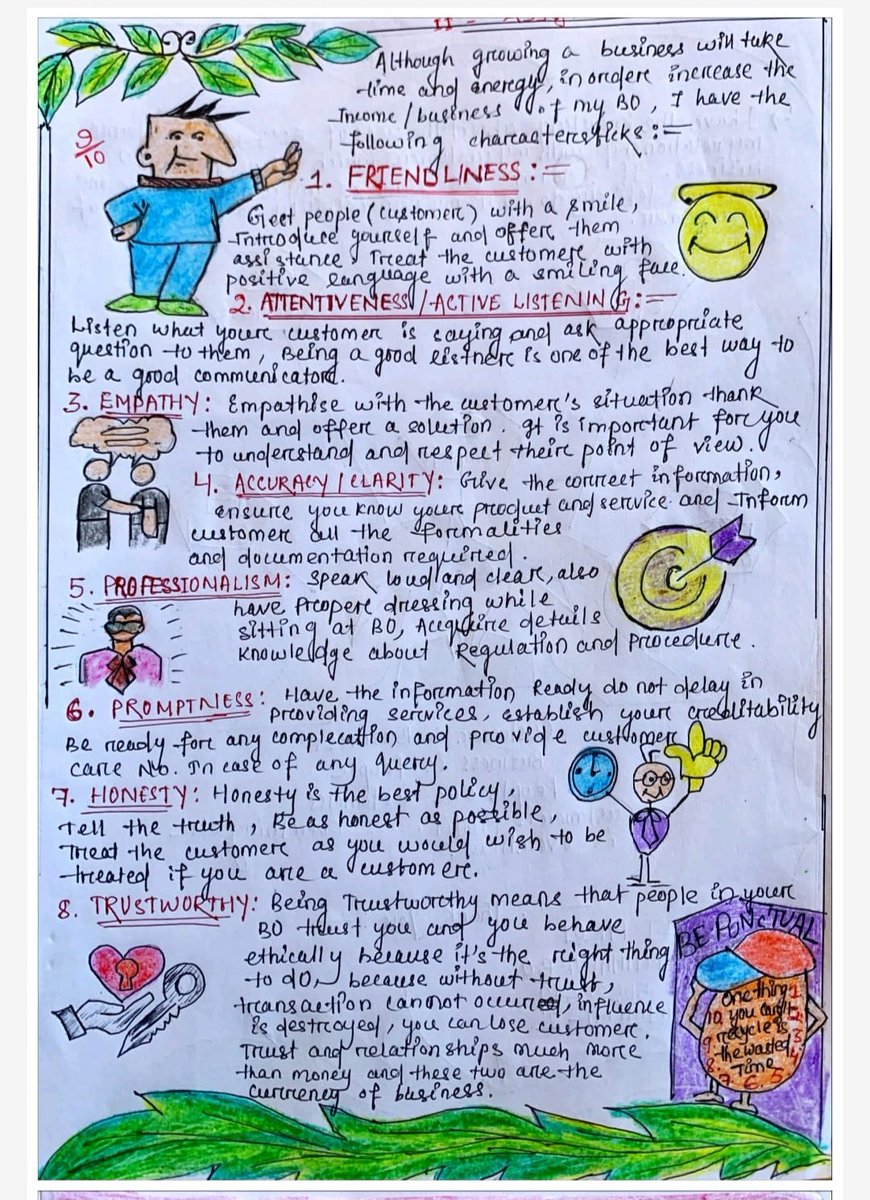 Although growing a business will take
time and energy, in order increase the
Income/business of my BO, I have the
following characterssticks:=
9/10
1. FRIENDLINESS:=
Geet people (customer) with a smile,
Introduce yourself and offer them
assistance. Treat the customer with
positive language with a smiling face.
2. ATTENTIVENESS/ACTIVE LISTENING:=
Listen what your customer is saying and ask appropriate
question to them, Being a good listner is one of the best way to
be a good communicator.
3. EMPATHY: Empathise with the customer's situation thank
them and offer a solution. It is important for you
to understand and respect their point of view.
4. ACCURACY/CLARITY: Give the correct information,
ensure you know your product and service and Inform
customer all the formalities
and documentation required.
5. PROFESSIONALISM: Speak loud and clear, also
have Proper dressing while
sitting at BO, Acquire details
Knowledge about Regulation and Procedure.
6. PROMPTNESS: Have the information Ready do not delay in
providing services, establish your creditability
Be ready for any complecation and provide customer
care No. In case of any query.
7. HONESTY: Honesty is the best policy,
Tell the truth, Be as honest as possible,
Treat the customer as you would wish to be
treated if you are a customer.
8. TRUSTWORTHY: Being Trustworthy means that people in your
BO trust you and you behave
ethically because it's the right thing
to do, because without trust,
transaction cannot occured, influence
is destroyed, you can lose customer.
Trust and relationships much more
than money and these two are the
currency of business.
BE PUNCTUAL
One thing 1
10. you can't 2.
9. recycle is 3.
8. the wasted 4.
Time
7. 6. 5